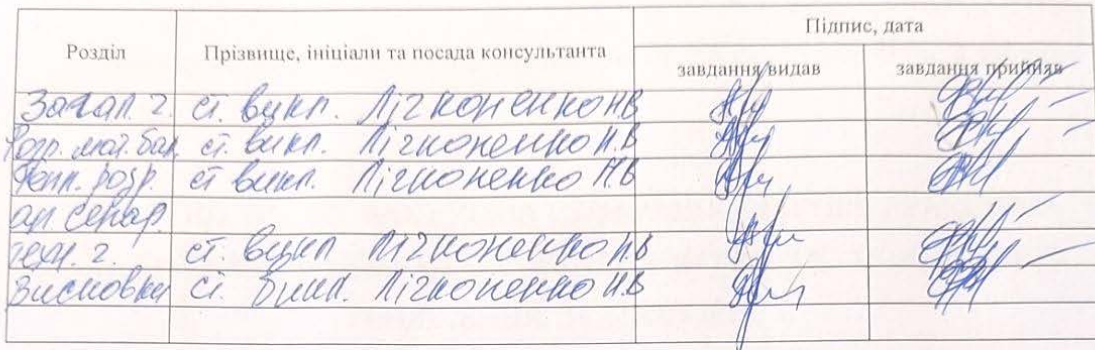 Підпис, дата
Розділ Прізвище, ініціали та посада консультанта
завдання видав завдання прийняв
Загал. г. ст. викл. Лігконенко Н.В
Розр. мат. бал. ст. викл. Лігконенко Н.В
розр. ст викл. Лігконенко Н.В
ап. сепар.
техн. г. ст. викл Лігконенко Н.В
Висновки ст. викл. Лігконенко Н.В